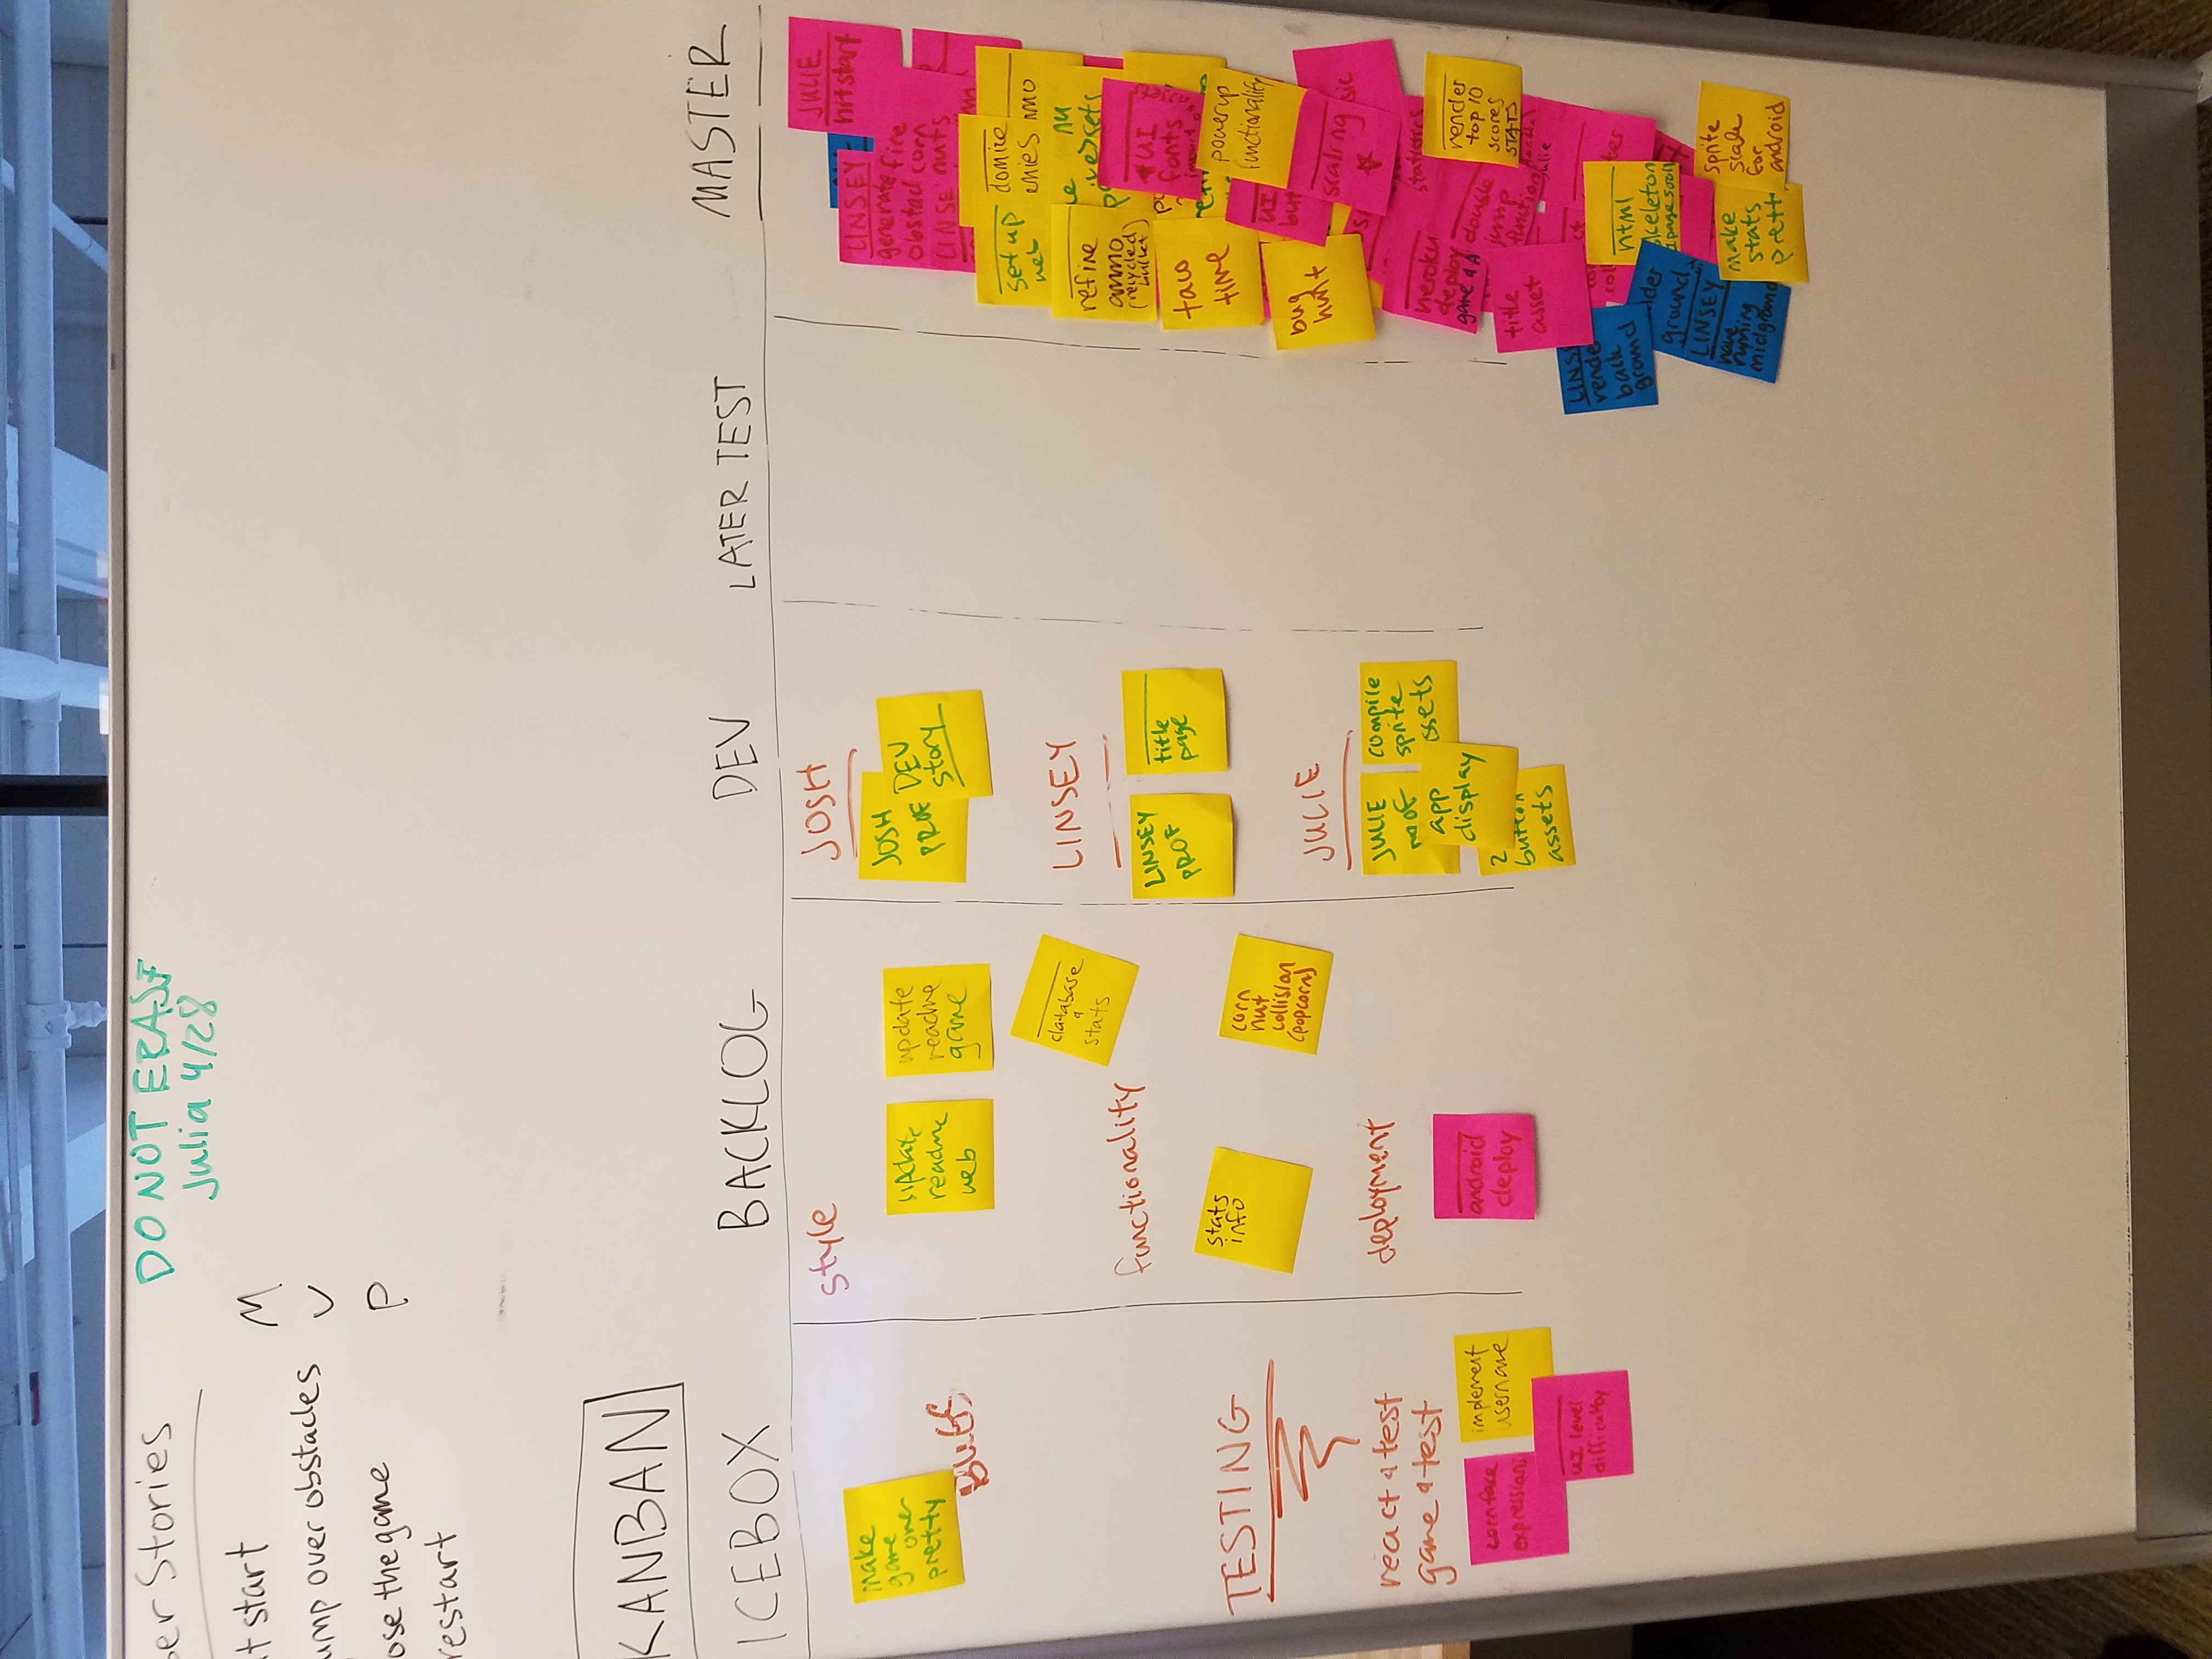 er Stories
DO NOT ERASE
Julia 4/28
t start
ump over obstacles
ose the game
restart
M
V
P
KANBAN
ICEBOX
BACKLOG
DEV
LATER TEST
MASTER
make
game
over
pretty
BUGS
TESTING
react & test
game & test
corn face
expressions
implement
username
UI level
difficulty
style
update
readme
web
update
readme
game
database
&
stats
functionality
stats
info
corn
nut
collision
(popcorn)
deployment
android
deploy
JOSH
JOSH
PROF
DEV
story
LINSEY
LINSEY
PROF
title
page
JULIE
JULIE
compile
sprite
assets
app
display
2
button
assets
JULIE
hit start
LINSEY
generate
obstac
fire
corn
nuts
LINSE
set up
web
domize
enies
mmo
refine
ammo
(recycled
bullet)
UI
fonts
taco
time
powerup
functionality
UI
but
bug
hunt
scaling
sic
statistics
heroku
deploy
game & A
double
jump
function
render
top 10
scores
STATS
Julie
title
asset
LINS
rende
back
ground
html
skeleton
1 page scroll
der
ground
LINSEY
have
running
midground
make
stats
prett
sprite
scale
for
android